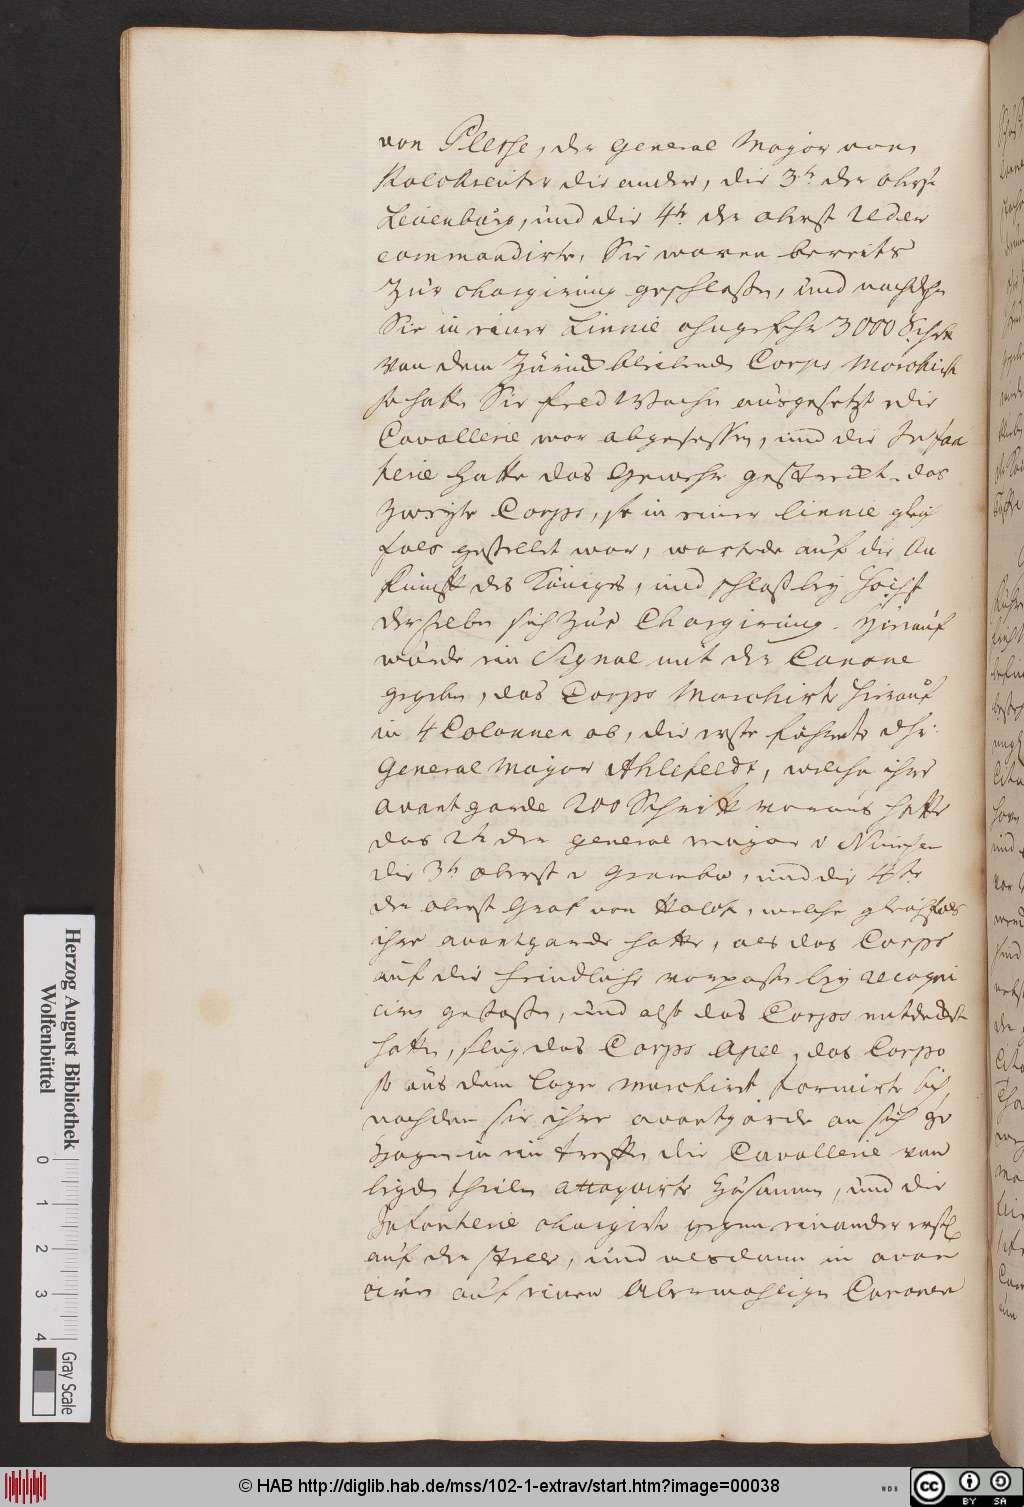 von Plesse, der General Major von
Kalckreuter die andere, die 3te der Obrist
Leuenburg, und die 4te der obrist Reder
commandirte, Sie waren bereits
zur chargirung geschloßen, und nachdehm
Sie in einer Linnie ohngefehr 3000 Schritt
von dem Zurück bleibend Corps Marchirt
so hatte Sie Feld Wache ausgesetzt die
Cavallerie war abgesessen, und die Infan
terie hatte das Gewehr gestreckt. das
zweyte Corps, so in einer linnie gleich
fals gestellet war, wartede auf die An
kunft des Königes, und schloß bey Höchst
derselben sich zur Chargirung. Hierauf
wurde ein Signal mit der Canone
gegeben, das Corps Marchirte hierauf
in 4 Colonnen ab, die erste führete der
General Major Ahlefeldt, welche ihre
avantgarde 200 Schritt voraus hatte
das 2te der general major v
die 3te obrist v Grambo, und die 4te
der obrist Graf von Holck, welche gleichfals
ihre avantgarde hatte, als das Corps
auf die feindliche vorposten bey recogni
ciren gestoßen, und alß das Corps entdeckt
hatte, schlug das Corps Apel, das Corps
so aus dem Lager marchiret formirte sich,
nachdem sie ihre avantgarde an sich ge
zogen in ein treffen die Cavallerie von
beyde theilen attaquirte zusammen, und die
Infanterie chargirte gegen einander erstl.
auf der stelle, und alsdann in avan
ciren auf einen Abermahligen Canonen
Herzog August Bibliothek
Wolfenbüttel
0 1 2 3 4
Gray Scale
© HAB http://diglib.hab.de/mss/102-1-extrav/start.htm?image=00038
WDB
CC BY SA